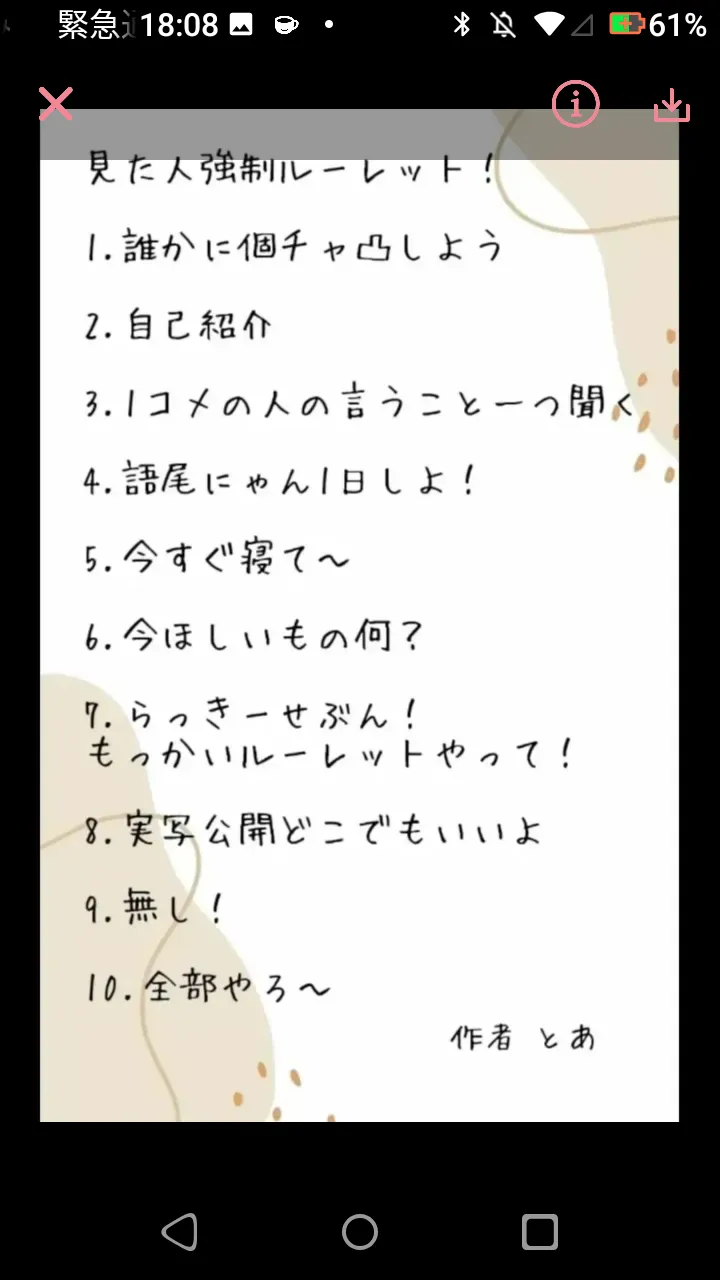 緊急 18:08 61%
見た人強制ルーレット!
1.誰かに個チャ凸しよう
2.自己紹介
3.1コメの人の言うこと一つ聞く
4.語尾にゃん1日しよ!
5.今すぐ寝て〜
6.今ほしいもの何?
7.らっきーせぶん!
もっかいルーレットやって!
8.実写公開どこでもいいよ
9.無し!
10.全部やろ〜
作者 とあ